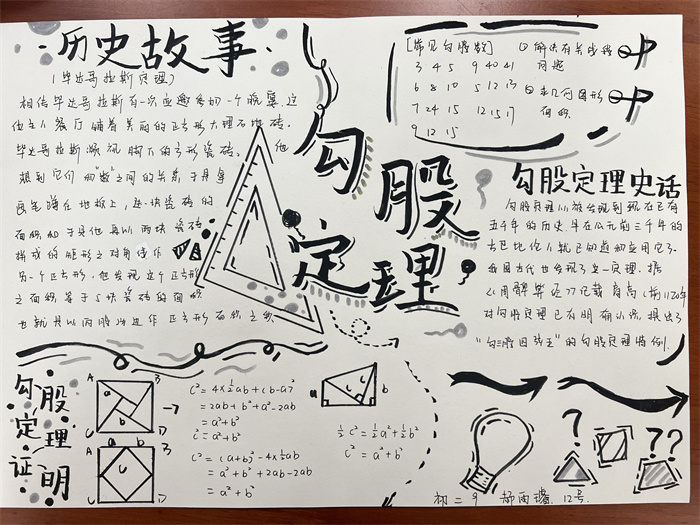 历史故事
(毕达哥拉斯定理)
相传毕达哥拉斯有一次应邀参加一个晚宴,这
位主人餐厅铺着美丽的正方形大理石地砖.
毕达哥拉斯凝视脚下的方形瓷砖, 他
想到它们和"数"之间的关系于是拿
画笔蹲在地板上,选一块瓷砖的
面积和于是他再以两块瓷砖
拼成的矩形之对角线作
另一个正方形,他发现这个正方形
之面积等于5块瓷砖的面积
也就是以两股为边作正方形面积之和
勾股定理
[常见勾股数]
3 4 5 9 40 41
6 8 10 5 12 13
7 24 25 12 15 17
9 12 15
①解决有关线段
问题
②求几何图形
面积
勾股定理史话
勾股定理从被发现到现在已有
五千年的历史,早在公元前三千年的
古巴比伦人就已知道和应用它了.
我国古代也发现了这一定理.据
《周髀算经》记载,商高(前1120年
对勾股定理已有明确认识,提出了
"勾三股四弦五"的勾股定理特例.
勾股定理证明
A B
b
C D
a b
c
C²=4×½ab+(b-a)²
=2ab+b²+a²-2ab
=a²+b²
C²=a²+b²
C²=(a+b)²-4×½ab
=a²+b²+2ab-2ab
=a²+b²
a c c b
½c²=½a²+½b²
c²=a²+b²
? ??
初二9 12号.